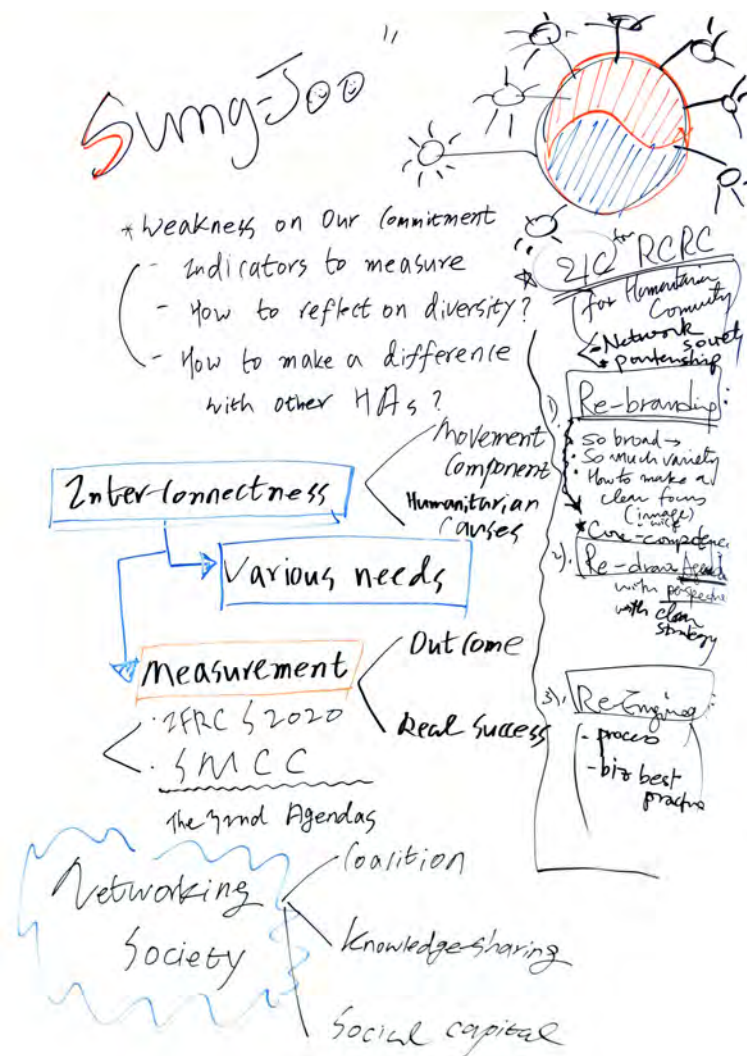 Sung-Joo
* Weakness on Our Commitment
- Indicators to measure
- How to reflect on diversity?
- How to make a difference
with other HAs?
Inter-connectness
Movement
Component
Humanitarian
Causes
Various needs
Measurement
Outcome
Real Success
· IFRC S2020
· SMCC
The 32nd Agendas
Networking
Society
Coalition
Knowledge-sharing
Social capital
21C RCRC
for Humanitarian
Comunity
- Network
society
* partnership
1). Re-branding:
· So broad →
· So much variety
· How to make a
clear focus
(image)
* Core-competence
2). Re-draw Agenda
with perspective
with clear
strategy
3). :
- process
- biz best